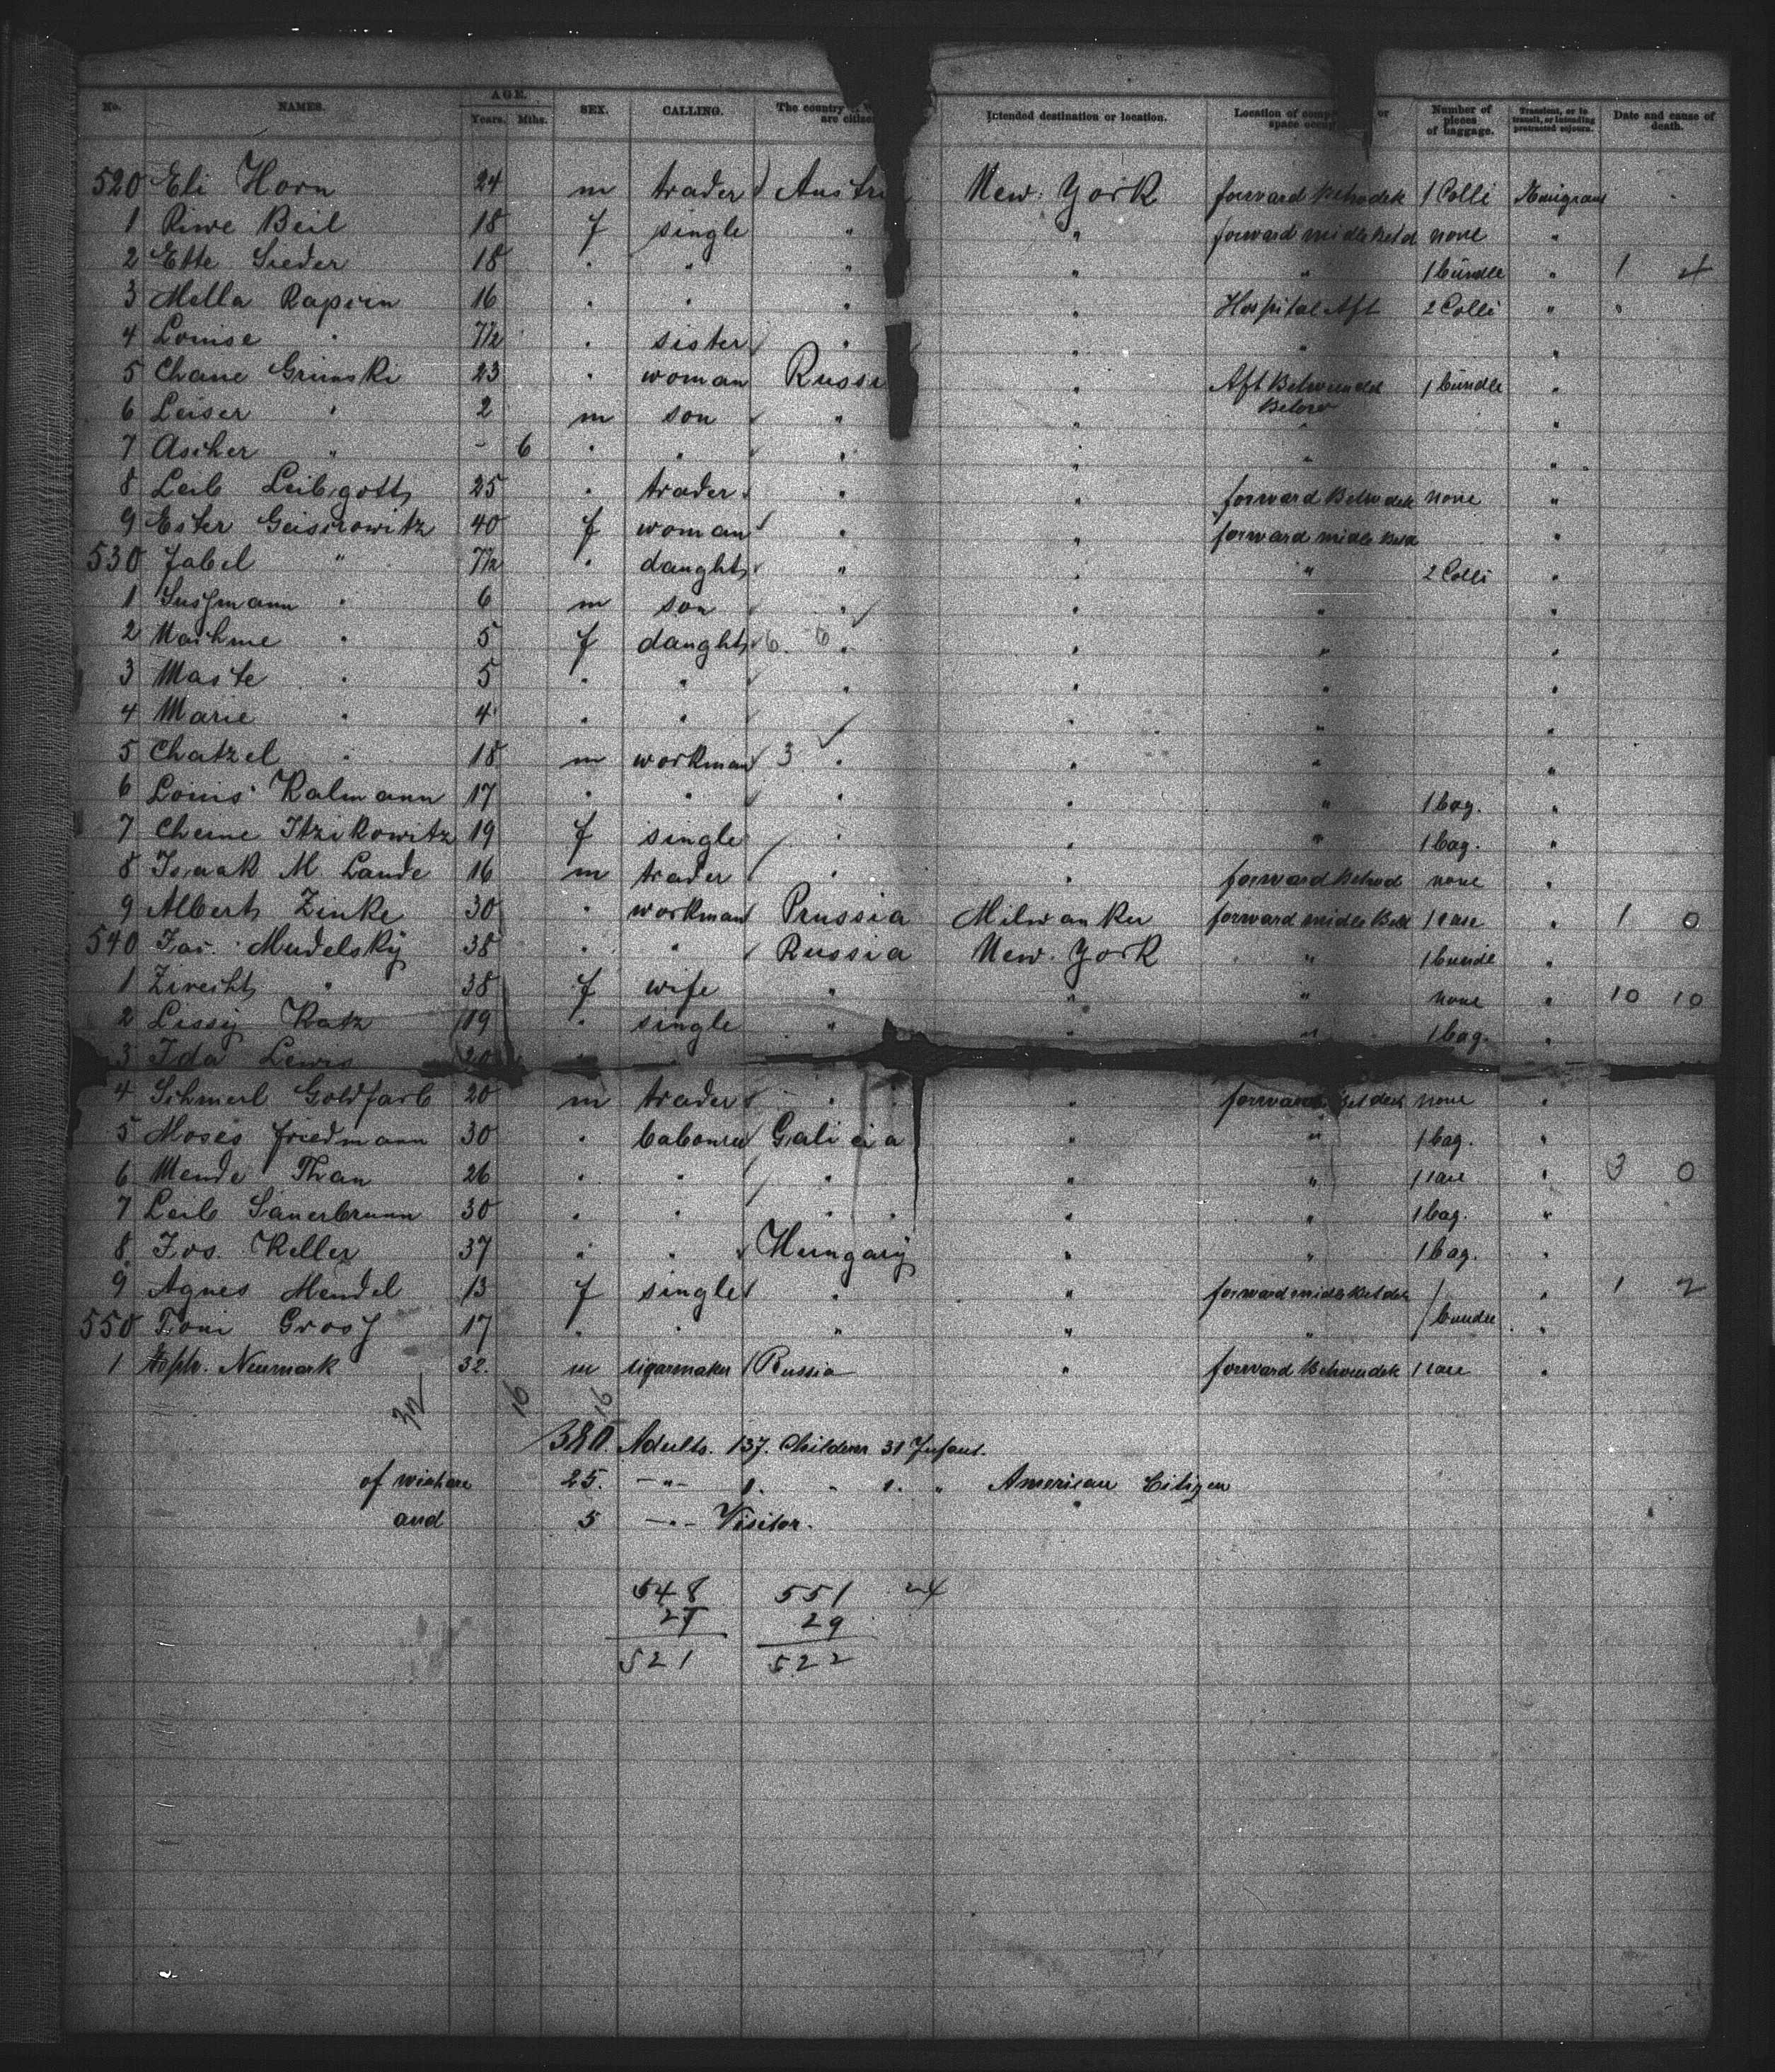 No. NAMES. AGE. Years. Mths. SEX. CALLING. The country are citize Intended destination or location. Location of comp or space occup Number of pieces of baggage. Transient, or in transit, or intending protracted sojourn. Date and cause of death.
520 Eli Horn 24 m trader Austri New York forward Betwdek 1 Colli
1 Riwe Beil 18 f single " " forward midle Betd none "
2 Ette Sieder 18 " " " " " 1 bündle " 1 4
3 Mella Rapirn 16 " " " " Hospital Aft 2 Colli " "
4 Louise " 7½ " sister " " " "
5 Chane Grimski 23 " woman Russi " Aft Betweendek Below 1 bündle "
6 Leiser " 2 m son " " " "
7 Ascher " - 6 " " " " " "
8 Leib Leibgott 25 " trader " " forward Betwdek none "
9 Ester Geisirowitz 40 f woman " " forward midle Betd "
530 Jabel " 7½ " daught " " " 2 Colli "
1 Susſmann " 6 m son " " " "
2 Machme " 5 f daught 6. 6 " " " "
3 Maste " 5 " " " " " "
4 Marie " 4 " " " " "
5 Chatzel " 18 m workman 3 " " " "
6 Louis Kalmann 17 " " " " " 1 bag. "
7 Cheine Itzikowitz 19 f single " " " 1 bag. "
8 Isaak M. Lande 16 m trader " " forward Betwd none "
9 Albert Zinke 30 " workman Prussia Milwauker forward midle Betd 1 case " 1 0
540 Jas. Mudelsky 38 " " Russia New York " 1 bundl "
1 Zirecht " 38 f wife " " " none " 10 10
2 Lissy Katz 19 " single " " " 1 bag. "
3 Ida Lewis 20 "
4 Schmerl Goldfarb 20 m trader " " forward Betdek none "
5 Moses Friedmann 30 " Galicia " " 1 bag. "
6 Mende Than 26 " " " " " 1 case " 3 0
7 Leib Sauerbrunn 30 " " " " " 1 bag. "
8 Jos. Keller 37 " " Hungary " " 1 bag. "
9 Agnes Mendel 13 f single " " forward midle Betdek " 1 2
550 Toni Grosſ 17 " " " " " 1 bundle "
1 Neumark 32. m sigarmaker Russia " forward Betweendek 1 case "
32 16 16
380. Adults. 137. Childern 31 Infant.
of wiehare 25. -"- 1. " 1. " American Citizen
and 5 -"- Visitor.
548 551 24
27 29
521 522